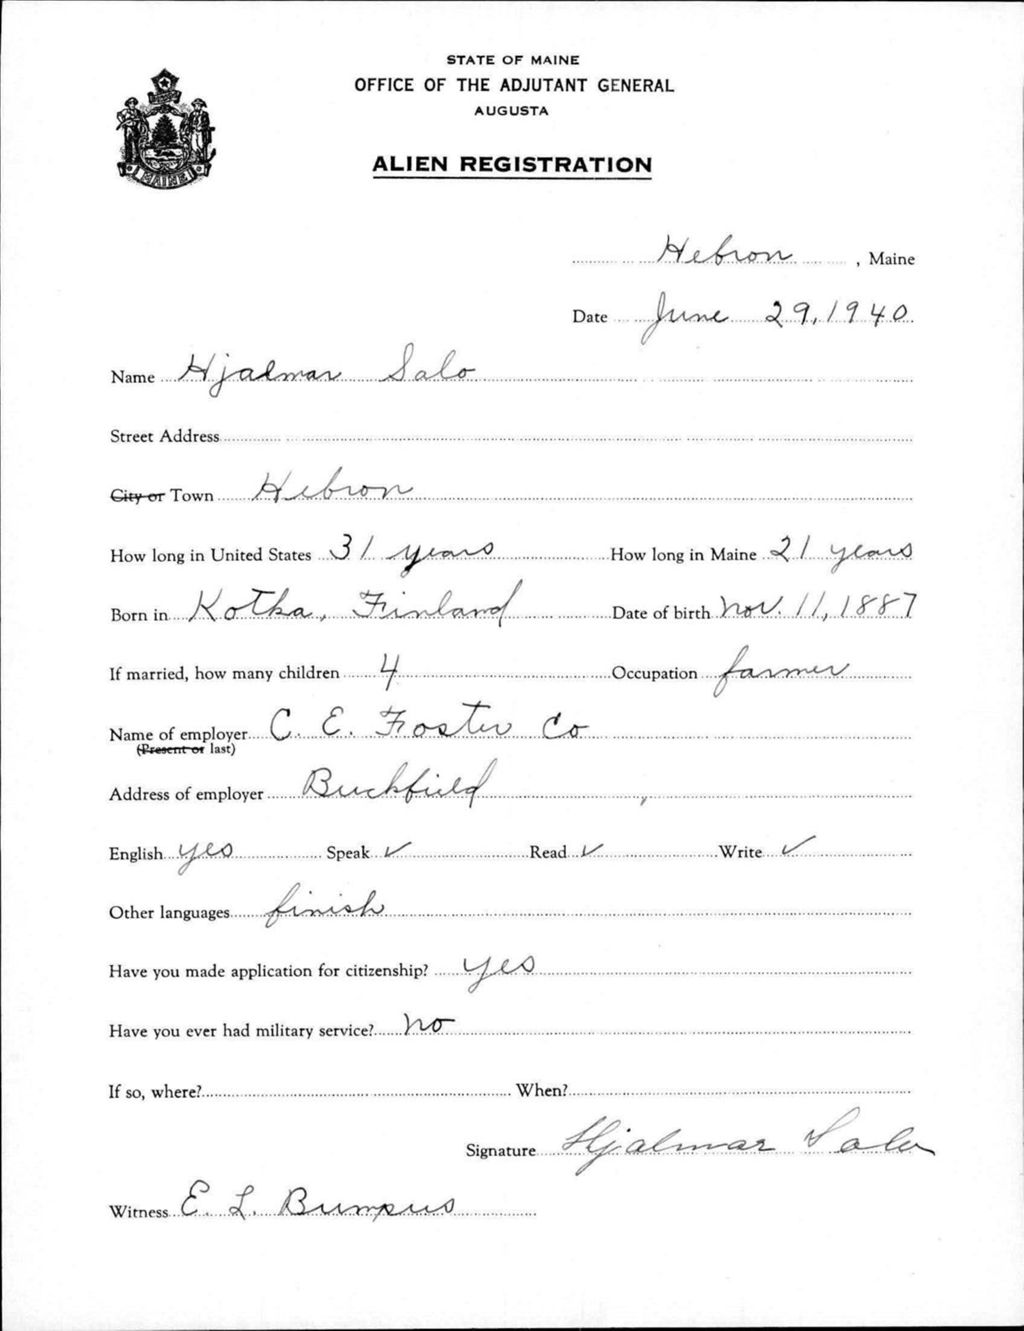 STATE OF MAINE
OFFICE OF THE ADJUTANT GENERAL
AUGUSTA
ALIEN REGISTRATION
MAINE
Hebron, Maine
Date June 29, 1940
Name Hjalmar Salo
Street Address
City or Town Hebron
How long in United States 31 years How long in Maine 21 years
Born in Kotka, Finland Date of birth Nov. 11, 1887
If married, how many children 4 Occupation farmer
Name of employer C. E. Foster Co
(Present or last)
Address of employer Buckfield
English yes Speak ✓ Read ✓ Write ✓
Other languages finish
Have you made application for citizenship? yes
Have you ever had military service? no
If so, where? When?
Signature Hjalmar Salo
Witness E. L. Bumpus